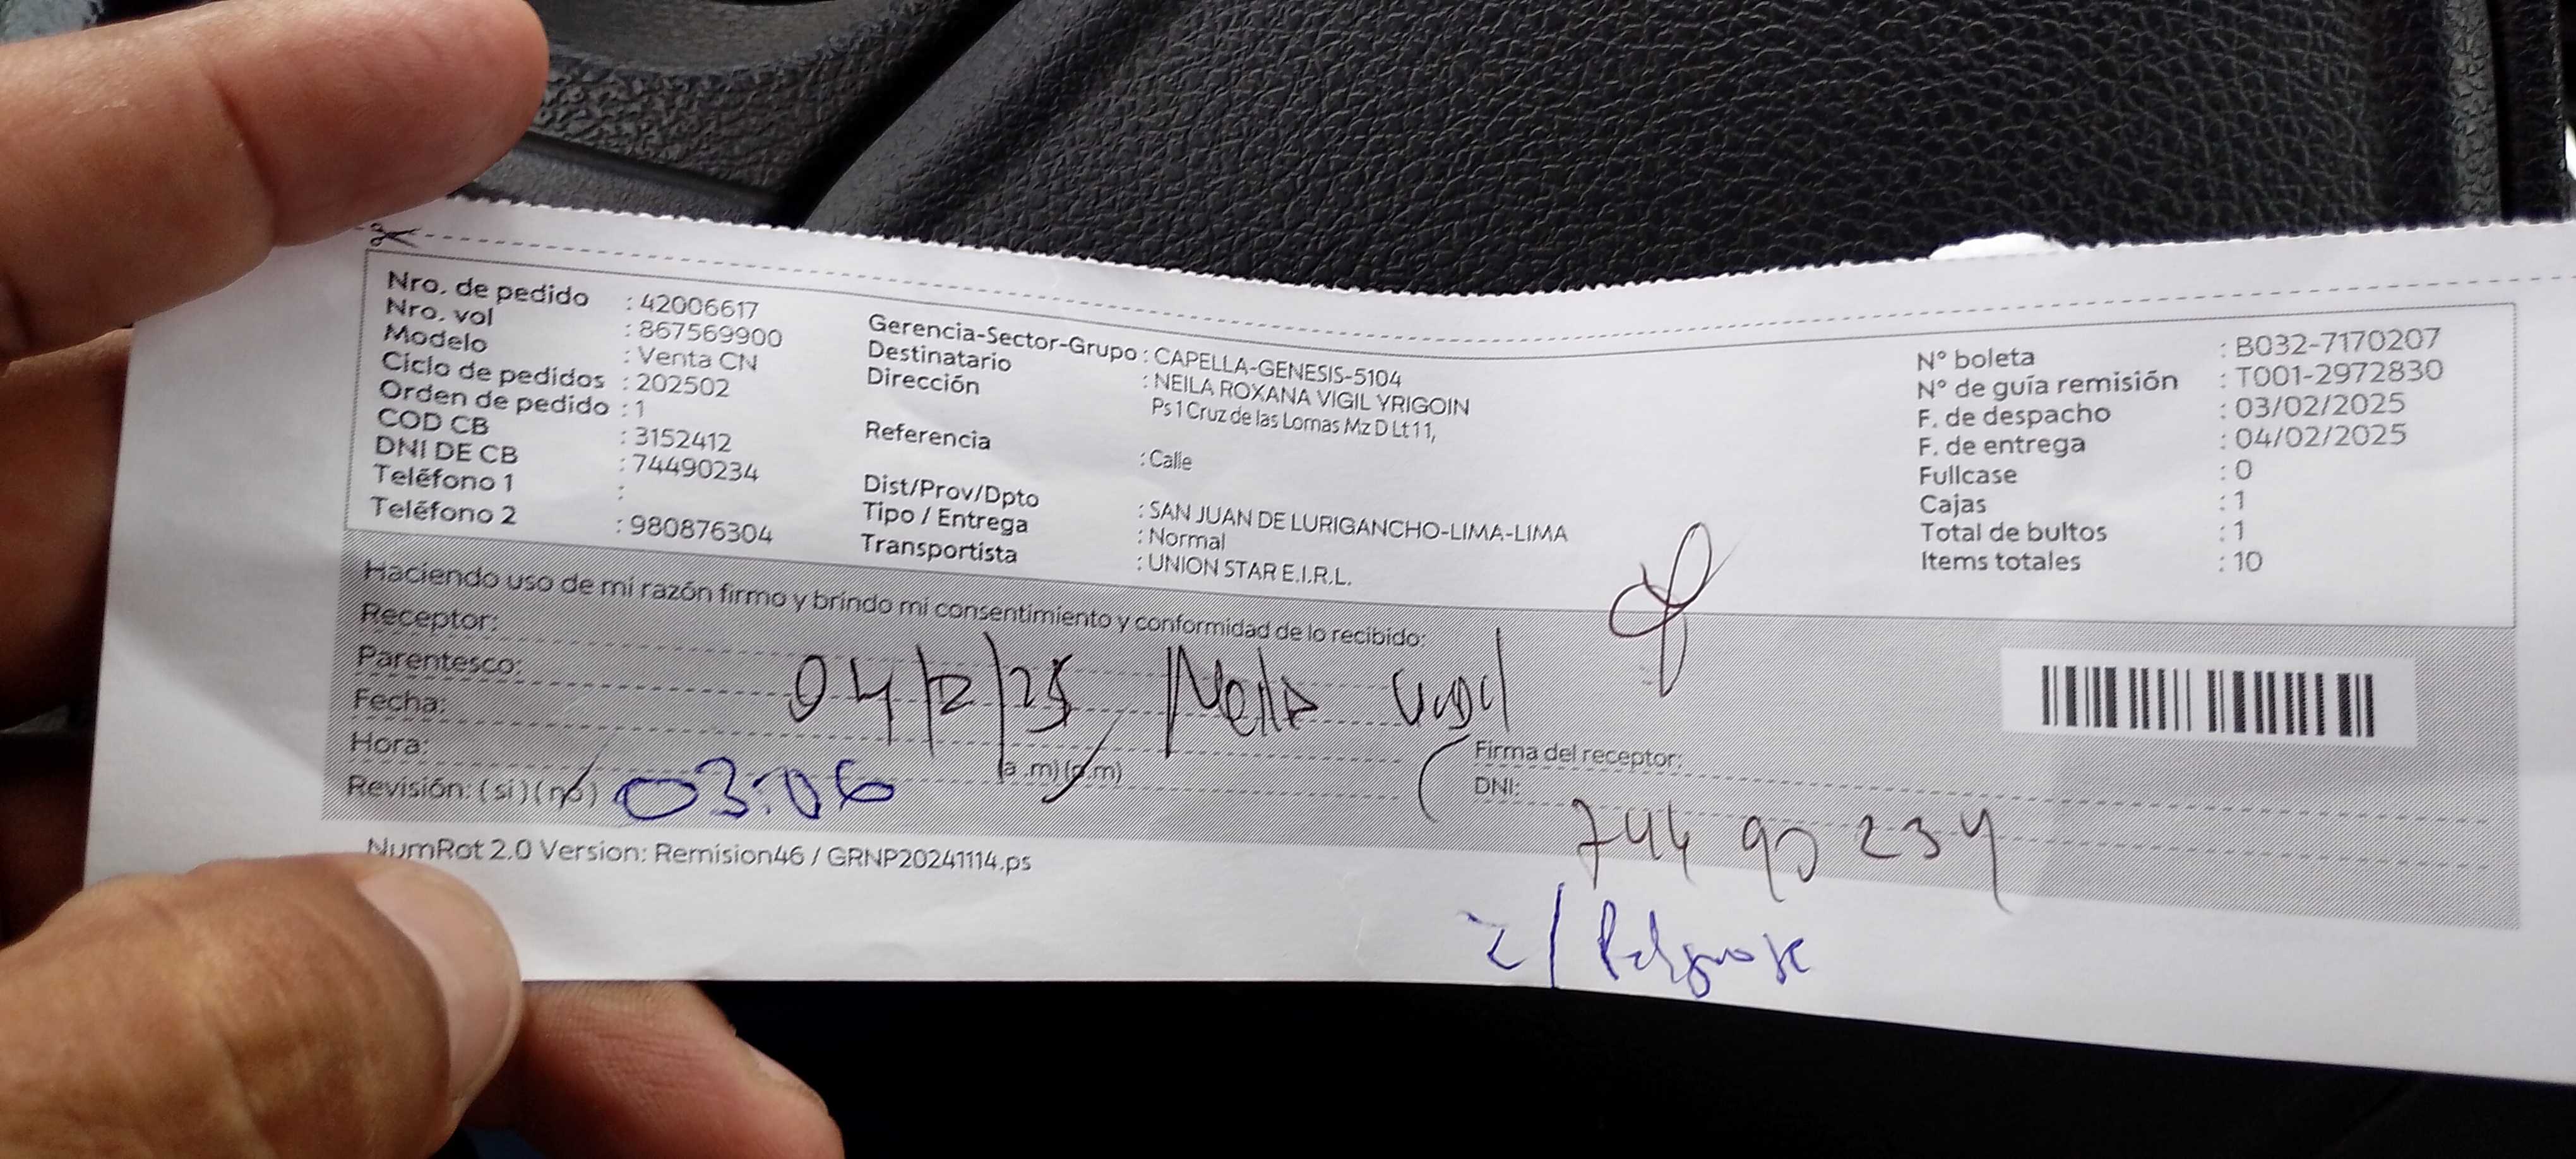 Nro. de pedido : 42006617
Nro. vol : 867569900
Modelo : Venta CN
Ciclo de pedidos : 202502
Orden de pedido : 1
COD CB : 3152412
DNI DE CB : 74490234
Teléfono 1 :
Teléfono 2 : 980876304
Gerencia-Sector-Grupo : CAPELLA-GENESIS-5104
Destinatario : NEILA ROXANA VIGIL YRIGOIN
Dirección Ps 1 Cruz de las Lomas Mz D Lt 11,
Referencia : Calle
Dist/Prov/Dpto : SAN JUAN DE LURIGANCHO-LIMA-LIMA
Tipo / Entrega : Normal
Transportista : UNION STAR E.I.R.L.
N° boleta : B032-7170207
N° de guía remisión : T001-2972830
F. de despacho : 03/02/2025
F. de entrega : 04/02/2025
Fullcase : 0
Cajas : 1
Total de bultos : 1
Items totales : 10
Haciendo uso de mi razón firmo y brindo mi consentimiento y conformidad de lo recibido:
Receptor:
Parentesco:
Fecha: 04/2/25 Neila Vigil
Hora: 03:06 (a.m)(p.m)
Revisión: (si)(no)
Firma del receptor:
DNI: 744 90 234
NumRot 2.0 Version: Remision46 / GRNP20241114.ps